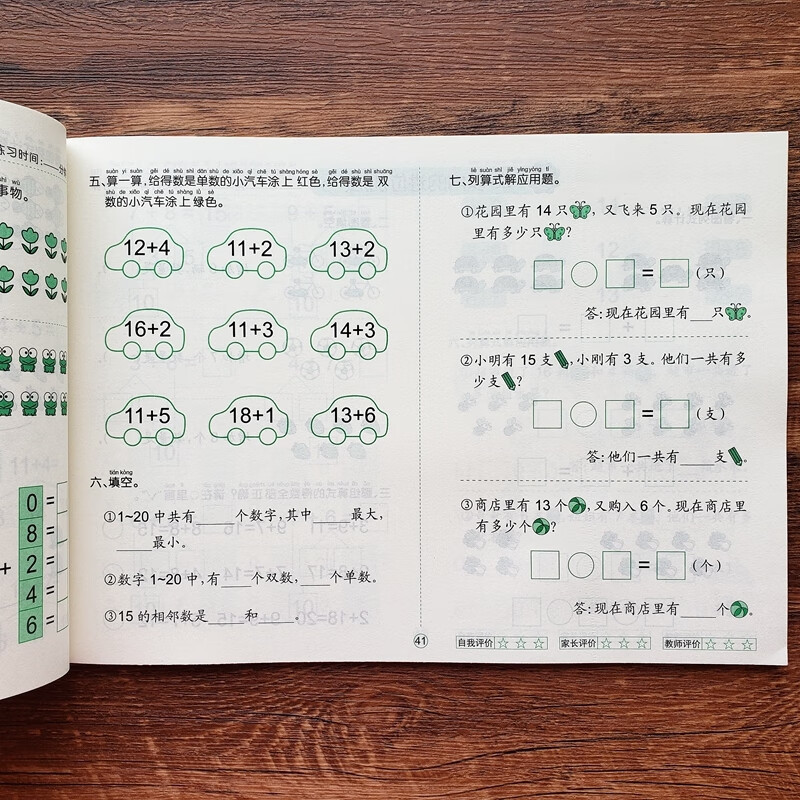 练习时间：
shì wù
事物。
0 =
8 =
+ 2 =
4 =
6 =
suàn yi suàn gěi dé shù shì dān shù de xiǎo qì chē tú shàng hóng sè gěi dé shù shì shuāng
五、算一算，给得数是单数的小汽车涂上 红色，给得数是 双
shù de xiǎo qì chē tú shàng lǜ sè
数的小汽车涂上 绿色。
12+4 11+2 13+2
16+2 11+3 14+3
11+5 18+1 13+6
tián kòng
六、填空。
①1~20 中共有____个数字，其中____最大，
____最小。
②数字 1~20 中，有___个双数，___个单数。
③15 的相邻数是____和____。
41
liè suàn shì jiě yìng yòng tí
七、列算式解应用题。
①花园里有 14 只，又飞来 5 只。现在花园
里有多少只？
□○□=□（只）
答：现在花园里有___只。
②小明有 15 支，小刚有 3 支。他们一共有多
少支？
□○□=□（支）
答：他们一共有____支。
③商店里有 13 个，又购入 6 个。现在商店里
有多少个？
□○□=□（个）
答：现在商店里有____个。
自我评价 ☆ ☆ ☆ 家长评价 ☆ ☆ ☆ 教师评价 ☆ ☆ ☆